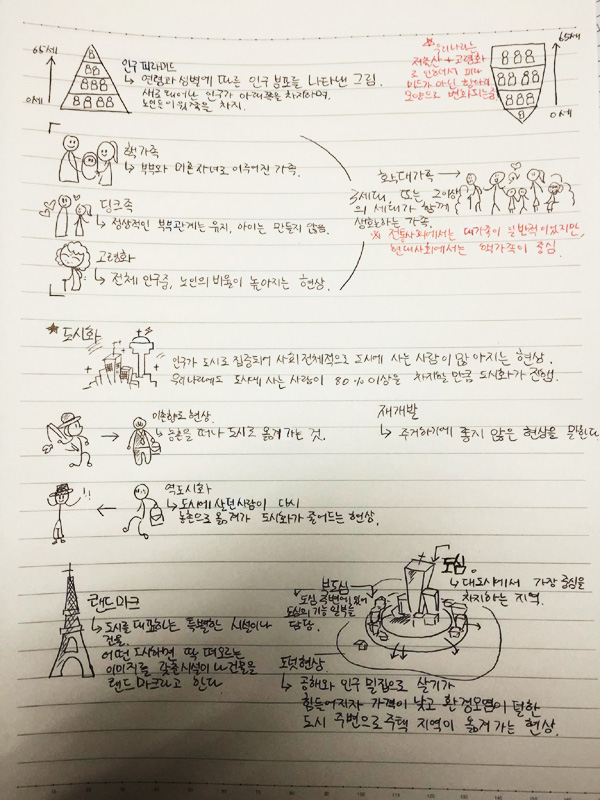 65세
0세
인구 피라미드
↳ 연령과 성별에 따른 인구 분포를 나타낸 그림.
새로 태어난 인구가 아래쪽을 차지하며,
노인들이 위쪽을 차지.
★우리나라는
저출산 + 고령화
로 인해서 피라
미드가 아닌 항아리
모양으로 변화되는중.
65세
0세
핵가족
↳ 부부와 미혼자녀로 이루어진 가족.
딩크족
↳ 정상적인 부부관계는 유지, 아이는 만들지 않음.
고령화
↳ 전체 인구중, 노인의 비율이 높아지는 현상.
확대가족
3세대, 또는 그이상
의 세대가 함께
생활하는 가족.
※ 전통사회에서는 대가족이 일반적이었지만,
현대사회에서는 핵가족이 중심.
★도시화
인구가 도시로 집중되어 사회 전체적으로 도시에 사는 사람이 많아지는 현상.
우리나라에도 도시에 사는 사람이 80% 이상을 차지할 만큼 도시화가 진행.
이촌향도 현상.
↳ 농촌을 떠나 도시로 옮겨 가는 것.
재개발
↳ 주거하기에 좋지 않은 현상을 말한다.
역도시화
↳ 도시에 살던사람이 다시
농촌으로 옮겨가 도시화가 줄어드는 현상.
랜드마크
↳ 도시를 대표하는 특별한 시설이나
건물.
어떤 도시하면 딱 떠오르는
이미지를 갖춘시설이나 건물을
랜드마크라고 한다
도심.
↳ 대도시에서 가장 중심을
차지하는 지역.
부도심
↳ 도심 주변에 있어
도심의 기능 일부를
담당.
도넛현상
↳ 공해와 인구 밀집으로 살기가
힘들어지자 가격이 낮고 환경오염이 덜한
도시 주변으로 주택 지역이 옮겨가는 현상.